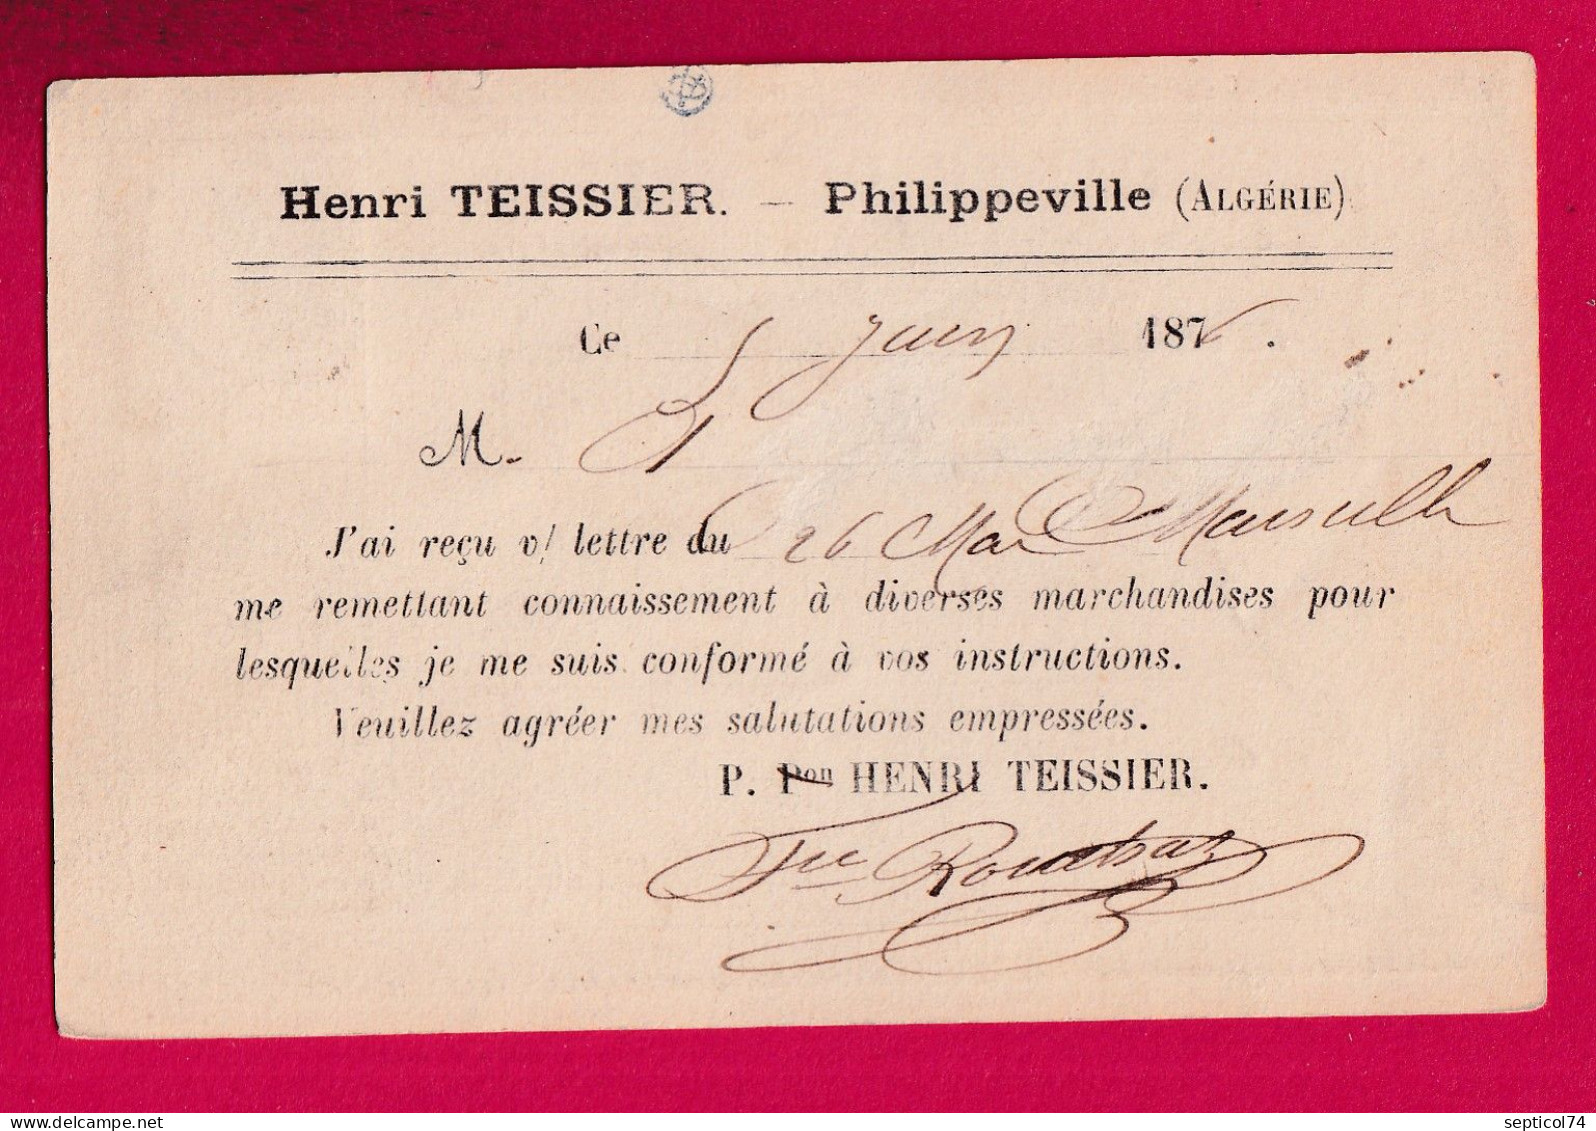 Henri TEISSIER. — Philippeville (ALGÉRIE)
Ce 5 Juin 1876.
M.
J'ai reçu v/ lettre du 26 Mai Marseille
me remettant connaissement à diverses marchandises pour
lesquelles je me suis conformé à vos instructions.
Veuillez agréer mes salutations empressées.
P. Pon HENRI TEISSIER.
delcampe.net
septicol74